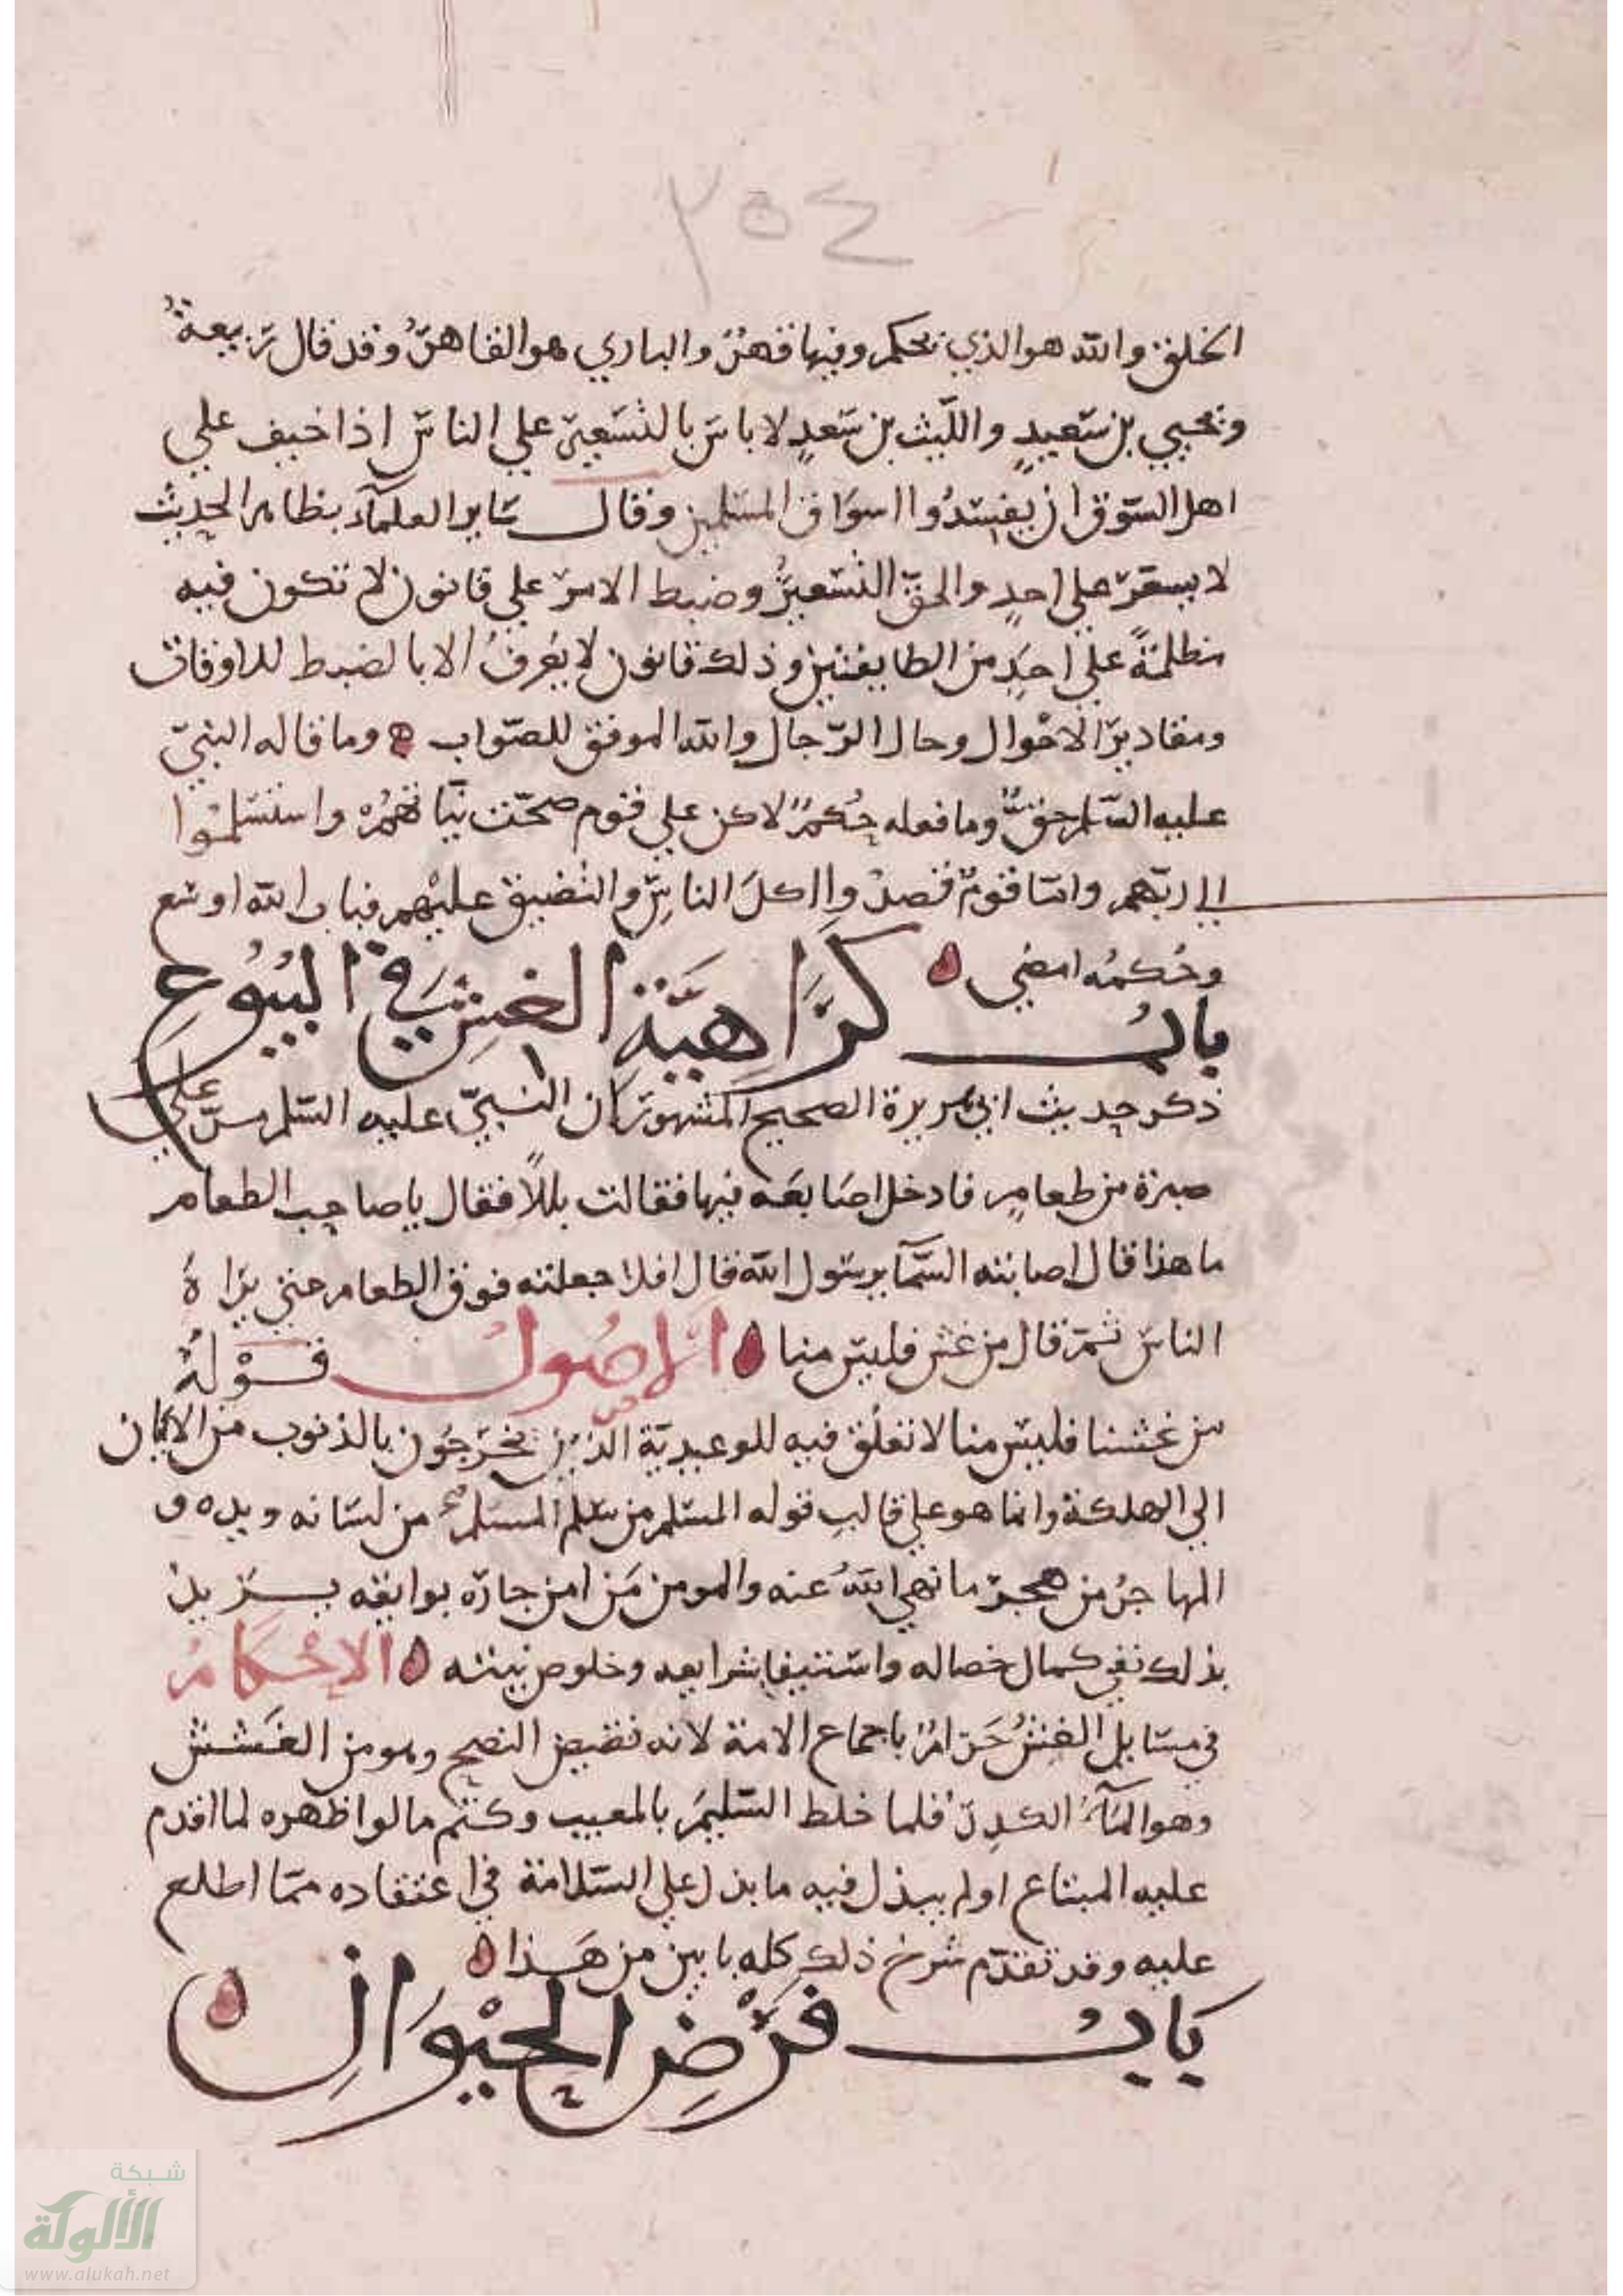 ٢٥٤
الخلق والله هو الذي يحكم وفيها قهر والباري هو القاهر وقد قال ربيعة
ويحيي بن سعيد والليث بن سعد لا باس بالتسعير علي الناس اذا خيف علي
اهل السوق ان يفسدوا اسواق المسلمين وقال ساير العلماء بظاهر الحديث
لا يسعر علي احد والحق التسعير وضبط الامر علي قانون لا تكون فيه
مظلمة علي احد من الطايفتين وذلك قانون لا يعرف الا بالضبط للاوقات
ومقادير الاحوال وحال الرجال والله الموفق للصواب ه وما قاله النبي
عليه السلم حق وما فعله حكم لاكن علي قوم صحت نياتهم واستسلموا
الي ربهم واما قوم قصدوا اكل الناس والتضييق عليهم فباب الله اوسع
وحكمه امضي ه
باب كراهية الغش في البيوع
ذكر حديث ابي هريرة الصحيح المشهور ان النبي عليه السلم مر علي
صبرة من طعام فادخل اصابعه فيها فقالت بللا فقال يا صاحب الطعام
ما هذا قال اصابته السما يرسول الله قال افلا جعلته فوق الطعام حتي يراه
الناس ثم قال من غش فليس منا ه الاصول قوله
من غشنا فليس منا لا تعلق فيه للوعيدية الذين يخرجون بالذنوب من الايمان
الي الهلكة وانما هو علي قالب قوله المسلم من سلم المسلمون من لسانه ويده و
المهاجر من هجر ما نهي الله عنه والمومن من امن جاره بوايقه يريد
بذلك نفي كمال خصاله واستيفا شرايعه وخلوص نيته ه الاحكام
في مسايل الغش حرام باجماع الامة لانه نقيض النصح وهو من الغشش
وهو الماء الكدر فلما خلط السليم بالمعيب وكتم ما لو اظهره لما اقدم
عليه المبتاع او لم يبذل فيه ما بذل علي السلامة في اعتقاده مما اطلع
عليه وقد تقدم شرح ذلك كله بابين من هذا ه
باب قرض الحيوان ه
شبكة
الألوكة
www.alukah.net